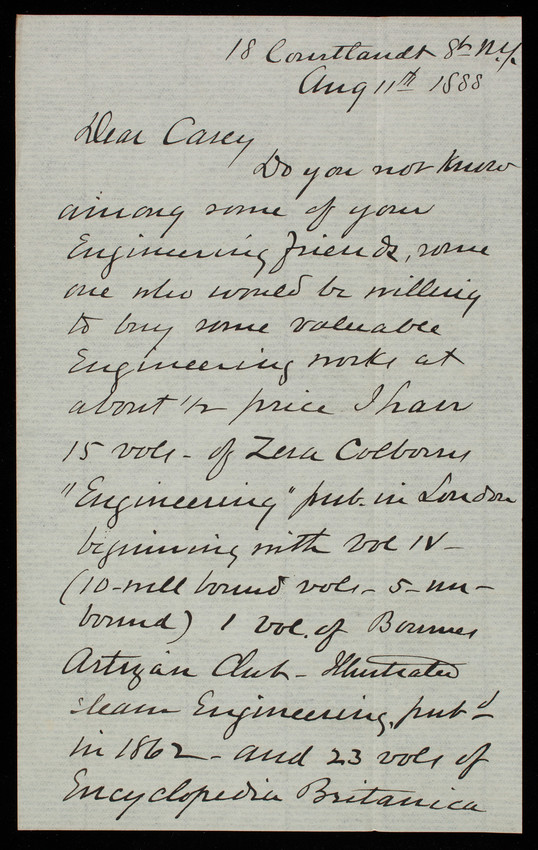 18 Courtlandt St N.Y.
Aug 11th 1888
Dear Casey
Do you not know
among some of your
Engineering friends, some
one who would be willing
to buy some valuable
Engineering works at
about 1/2 price I have
15 vols - of Zera Colborns
"Engineering" pub. in London
beginning with Vol IV -
(10 - well bound vols - 5 - un-
bound) 1 vol. of Bournes
Artizan Club - Illustrated
steam Engineering, pubd -
in 1862 - and 23 vols of
Encyclopedia Britanica